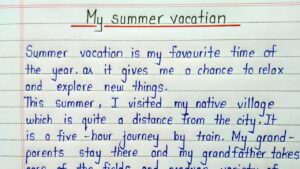 My summer vacation
Summer vacation is my favourite time of
the year. as it gives me a chance to relax
and explore new things.
This summer, I visited my native village
which is quite a distance from the city. It
is a five-hour journey by train. My grand-
parents stay there and my grandfather takes
care of the fields and